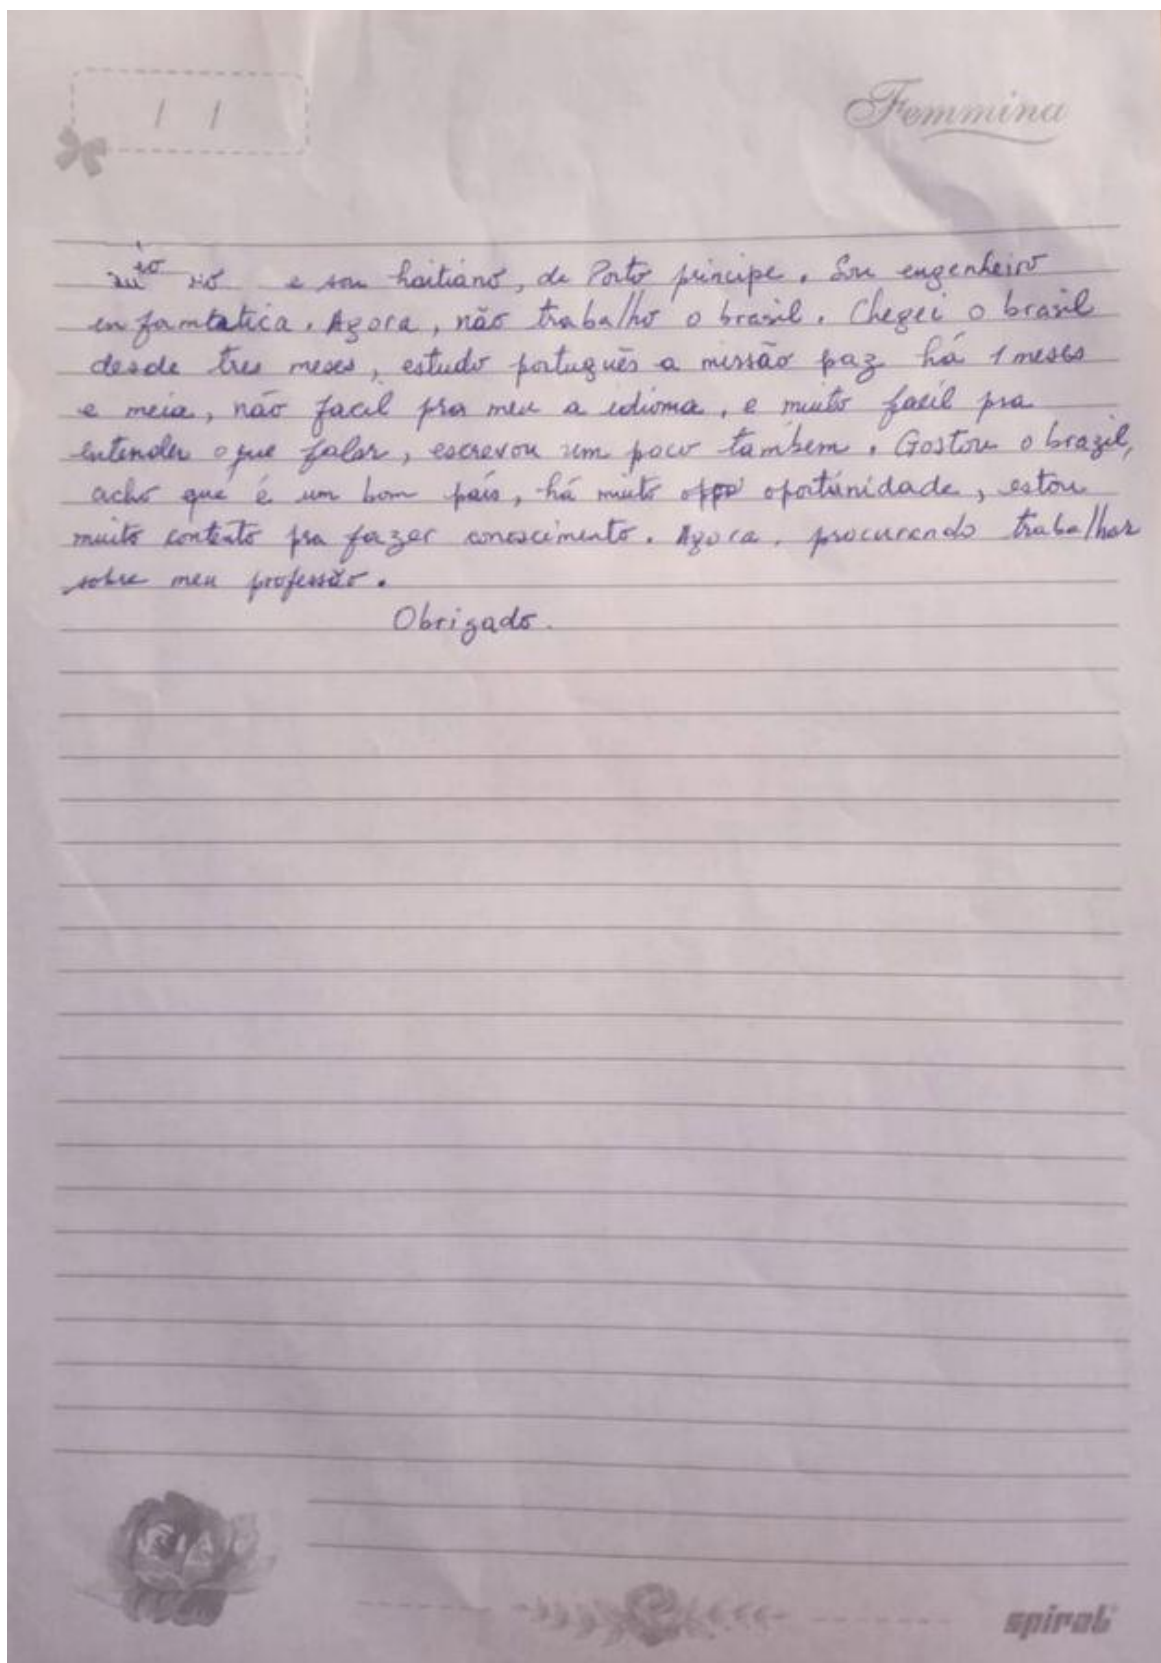 / /
Femmina
e sou haitiano, de Porto principe. Sou engenheiro
en famtatica. Agora, não trabalho o brasil. Chegei o brasil
desde tres meses, estudo português a missão paz há 1 meses
e meia, não facil pra meu a idioma, e muito facil pra
entender o que falar, escrevou um poco tambem. Gostou o brazil,
acho que é um bom país, há muito oportúnidade, estou
muito contento pra fazer conoscimento. Agora, procurando trabalhar
sobre meu professão.
Obrigado.
spiral